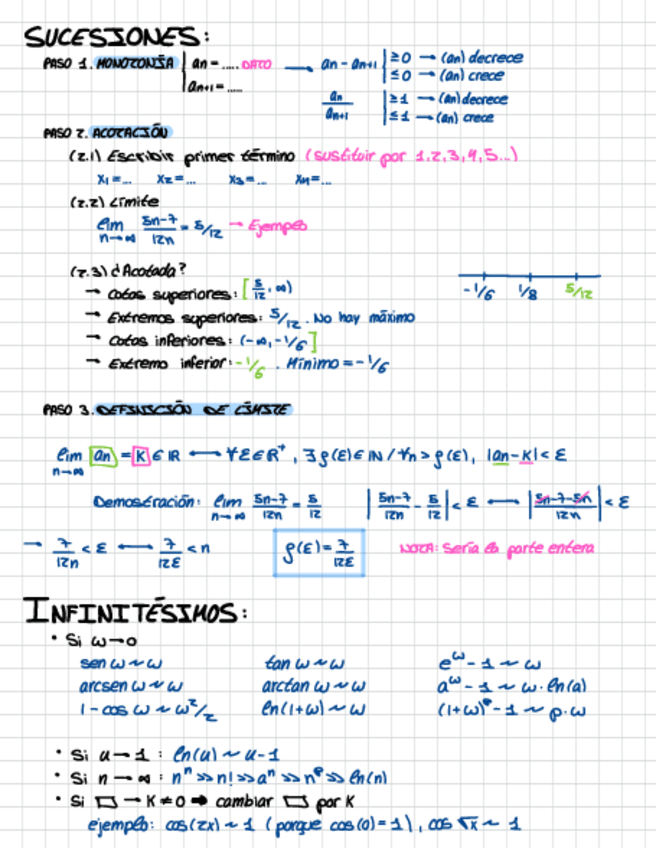 SUCESIONES:
PASO 1. MONOTONÍA | an = ..... DATO → an - an+1 | ≥0 → (an) decrece
an+1 = ..... | ≤0 → (an) crece
an/an+1 | ≥1 → (an) decrece
≤1 → (an) crece
PASO 2. ACOTACIÓN
(2.1) Escribir primer término (sustituir por 1,2,3,4,5...)
X1=... X2=... X3=... X4=...
(2.2) Límite
lim n→∞ 5n-7/12n = 5/12 → Ejemplo
(2.3) ¿Acotada?
→ Cotas superiores: [5/12, ∞)
-1/6 1/8 5/12
→ Extremos superiores: 5/12. No hay máximo
→ Cotas inferiores: (-∞, -1/6]
→ Extremo inferior: -1/6. Mínimo = -1/6
PASO 3. DEFINICIÓN DE LÍMITE
lim n→∞ an = K ∈ IR ⟷ ∀ε∈R⁺, ∃ρ(ε)∈IN / ∀n > ρ(ε), |an-K| < ε
Demostración: lim n→∞ 5n-7/12n = 5/12 |5n-7/12n - 5/12| < ε ⟷ |5n-7-5n/12n| < ε
→ 7/12n < ε ⟷ 7/12ε < n ρ(ε) = 7/12ε NOTA: Sería la parte entera
INFINITÉSIMOS:
• Si ω→0
sen ω ~ ω tan ω ~ ω e^ω - 1 ~ ω
arcsen ω ~ ω arctan ω ~ ω a^ω - 1 ~ ω·ln(a)
1-cos ω ~ ω²/2 ln(1+ω) ~ ω (1+ω)^p - 1 ~ p·ω
• Si u→1 : ln(u) ~ u-1
• Si n→∞ : n^n >> n! >> a^n >> n^p >> ln(n)
• Si ▭ → K≠0 ➡ cambiar ▭ por K
ejemplo: cos(2x) ~ 1 (porque cos(0)=1), cos √x ~ 1